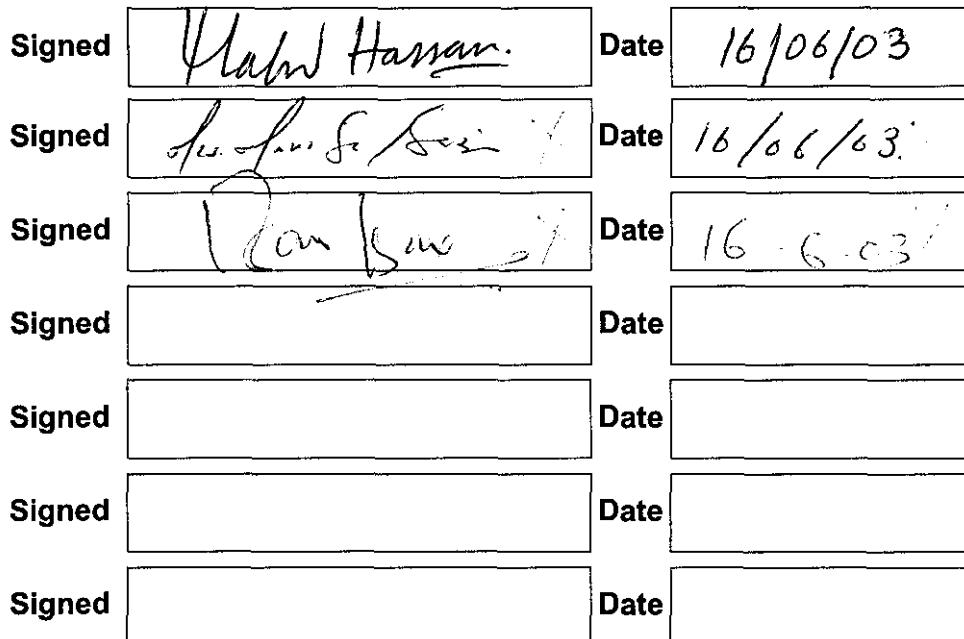 Signed Hassan. Date 16/06/03
Signed Date 16/06/03
Signed Date 16-6-03
Signed Date
Signed Date
Signed Date
Signed Date